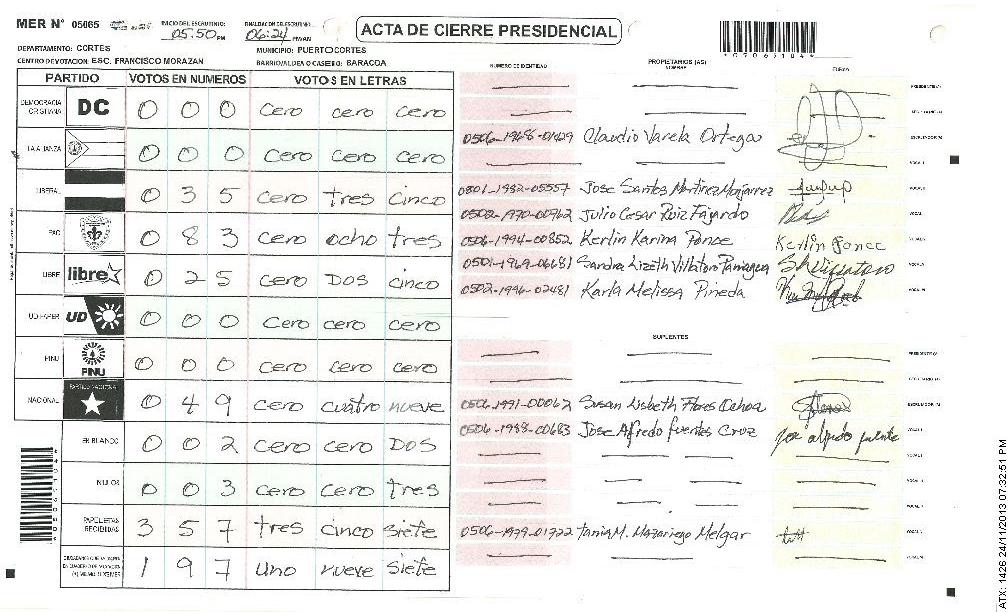 MER N° 05065 INICIO DEL ESCRUTINIO: 05:50 PM FINALIZACION DEL ESCRUTINIO: 06:24 PM/AM
ACTA DE CIERRE PRESIDENCIAL
DEPARTAMENTO: CORTES MUNICIPIO: PUERTO CORTES
CENTRO DE VOTACION: ESC. FRANCISCO MORAZAN BARRIO/ALDEA O CASERIO: BARACOA
PARTIDO VOTOS EN NUMEROS VOTOS EN LETRAS
DEMOCRACIA CRISTIANA DC 0 0 0 cero cero cero
LA ALIANZA 0 0 0 cero cero cero
LIBERAL 0 3 5 cero tres cinco
PAC 0 8 3 cero ocho tres
LIBRE libre 0 2 5 cero DOS cinco
UD FAPER UD 0 0 0 cero cero cero
PINU PINU 0 0 0 cero cero cero
NACIONAL PARTIDO NACIONAL 0 4 9 cero cuatro nueve
EN BLANCO 0 0 2 cero cero DOS
NULOS 0 0 3 cero cero tres
PAPELETAS RECIBIDAS 3 5 7 tres cinco siete
1 9 7 uno nueve siete
NUMERO DE IDENTIDAD PROPIETARIOS (AS) NOMBRE FIRMA
0506-1968-01429 Claudio Varela Ortega
0801-1982-05557 Jose Santos Martinez Monjarrez
0502-1970-00762 Julio Cesar Ruiz Fajardo
0506-1994-00852 Kerlin Karina Ponce Kerlin Ponce
0501-1969-06681 Sandra Lizeth Villatoro Paniagua
0502-1996-02481 Karla Melissa Pineda
SUPLENTES
0506-1991-00062 Susan Lisbeth Flores Ochoa
0506-1988-00683 Jose Alfredo fuentes Cruz
0506-1979-01722 Tania M. Mazariego Melgar
ATX: 1426 24/11/2013 07:32:51 PM